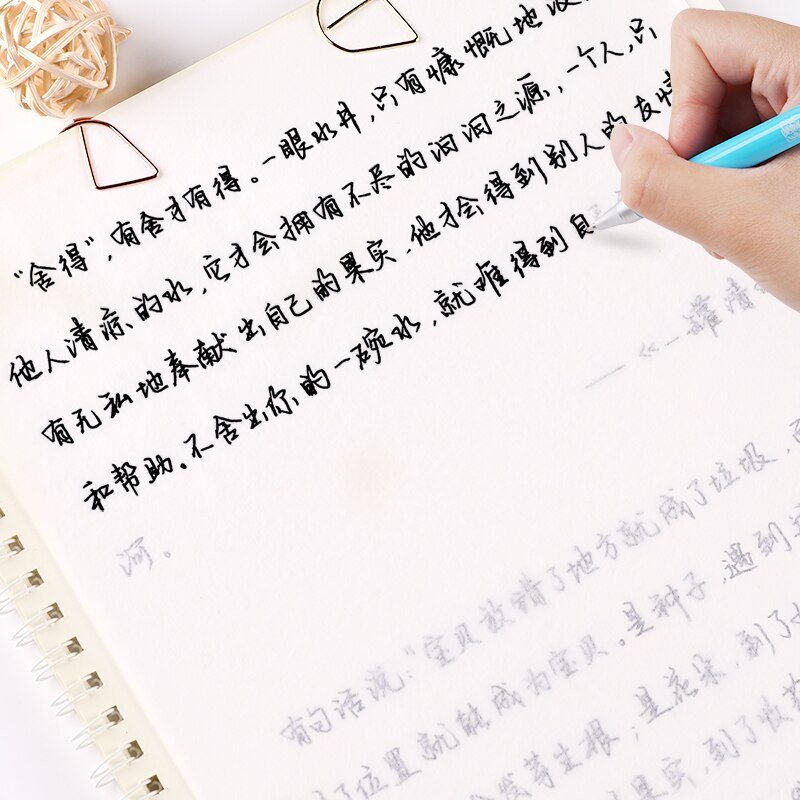 "舍得",有舍才有得。一眼水井,只有慷慨地
他人清凉的水,它才会拥有不尽的汩汩之源,一个人,只
有无私地奉献出自己的果实,他才会得到别人的友情
和帮助。不舍出你的一碗水,就难得到自
——《一罐清
河。
有句话说:"宝贝放错了地方就成了垃圾,
位置就能成为宝贝。是种子,遇到
会发芽生根;是花朵,到了
果实,到了收获